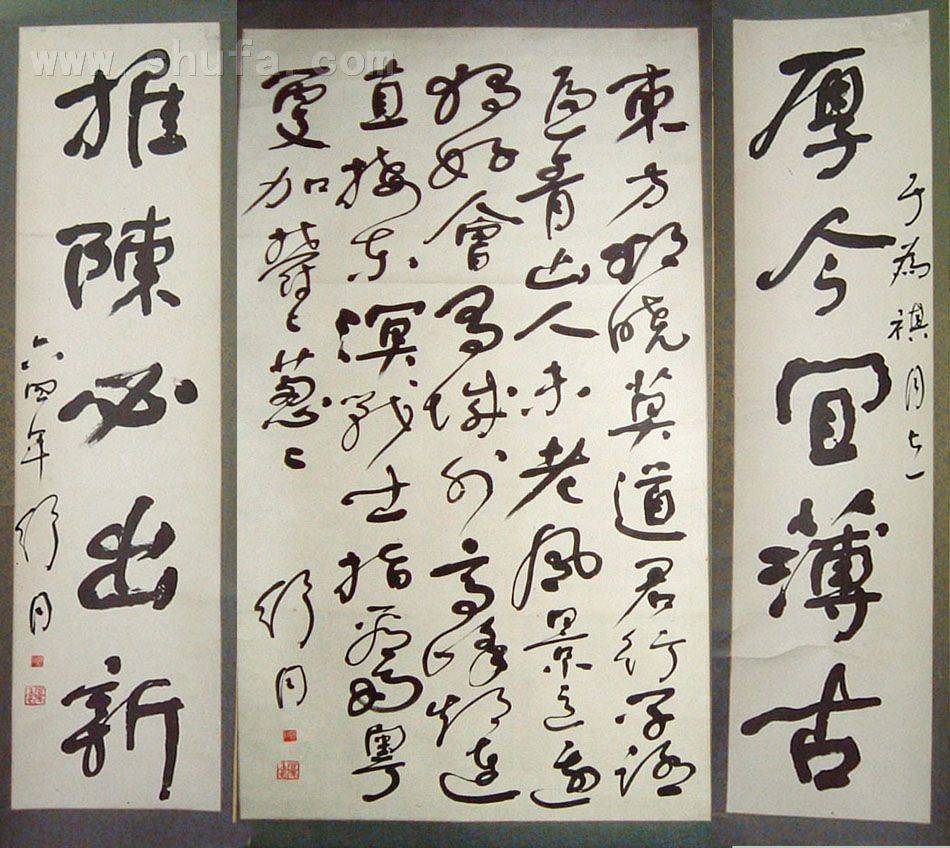 厚今宜薄古
于為祺同志
東方欲晓莫道君行早踏
遍青山人未老風景這邊
獨好會昌城外高峰顛連
直接东溟戰士指看南粤
更加鬱〻葱〻
舒同
推陳必出新
六四年 舒同
www.shufa.com